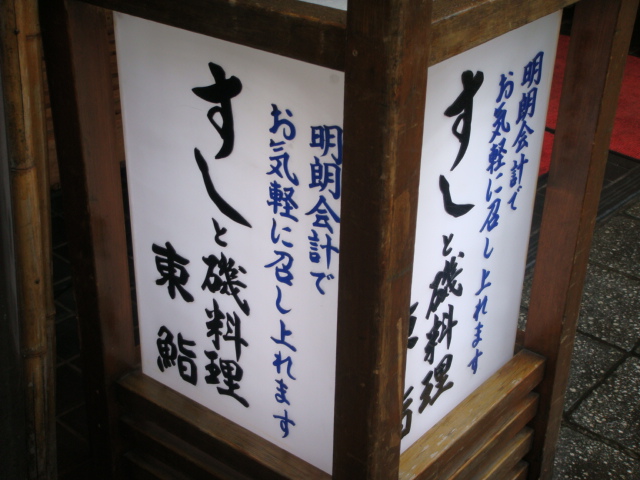 明朗会計で
お気軽に召し上れます
すしと磯料理
東鮨
明朗会計で
お気軽に召し上れます
すしと磯料理